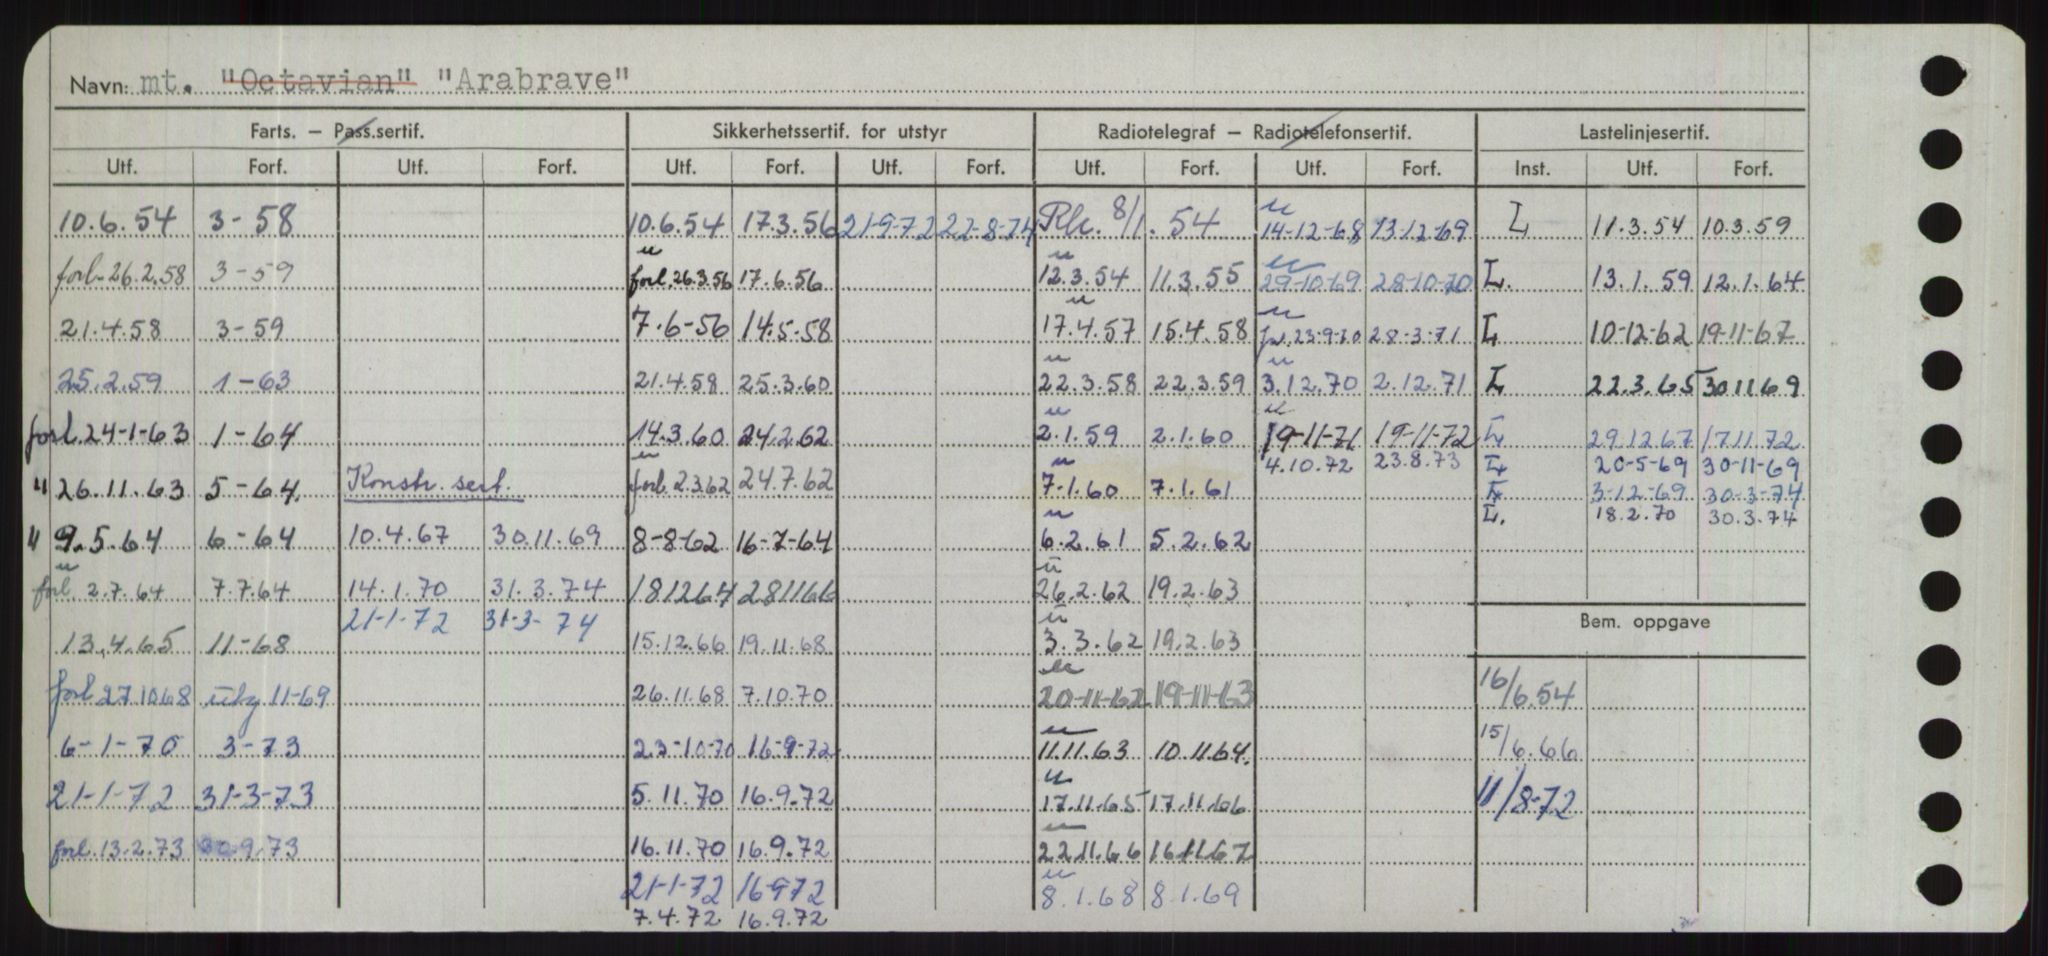 Navn: mt. "Octavian" "Arabrave"
Farts. — Pass.sertif. Sikkerhetssertif. for utstyr Radiotelegraf — Radiotelefonsertif. Lastelinjesertif.
Utf. Forf. Utf. Forf. Utf. Forf. Utf. Forf. Utf. Forf. Utf. Forf. Inst. Utf. Forf.
10.6.54 3-58 10.6.54 17.3.56 21-9-72 22-8-74 8/1.54 14-12-68 13-12-69 L 11.3.54 10.3.59
forl. 26.2.58 3-59 forl. 26.3.56 17.6.56 12.3.54 11.3.55 29-10-69 28-10-70 L. 13.1.59 12.1.64
21.4.58 3-59 7.6-56 14.5-58 17.4.57 15.4.58 23-9-70 28-3-71 L 10-12-62 19-11-67
25.2.59 1-63 21.4.58 25.3.60 22.3.58 22.3.59 3.12.70 2.12.71 L 22.3.65 30.11.69
forl. 24-1-63 1-64 14.3.60 24.2.62 2.1.59 2.1.60 19-11-71 19-11-72 L 29.12.67 17.11.72
4.10.72 23.8.73 L 20-5-69 30-11-69
" 26.11.63 5-64. Konstr. sert. forl. 2.3.62 24.7.62 7-1.60 7.1.61 L 3-12-69 30-3-74
L. 18.2.70 30.3.74
" 9.5.64 6-64 10.4.67 30.11.69 8-8-62 16-7-64 6.2.61 5.2.62
forl. 2.7.64 7.7.64 14.1.70 31.3.74 181264 281166 26.2.62 19.2.63
21-1-72 31-3-74
Bem. oppgave
13.4.65 11-68 15.12.66 19.11.68 3.3.62 19.2.63
forl 27.10.68 utg 11-69 26.11.68 7.10.70 20-11-62 19-11-63 16/6.54
6-1-70 3-73 23-10-70 16-9-72 11.11.63 10.11.64. 15/6.66
21-1-72 31-3-73 5.11.70 16.9.72 17.11.65 17.11.66 11/8-72
forl. 13.2.73 30.9.73 16.11.70 16.9.72 22.11.66 16.11.67
21-1-72 16-9-72 8.1.68 8.1.69
7.4.72 16.9.72